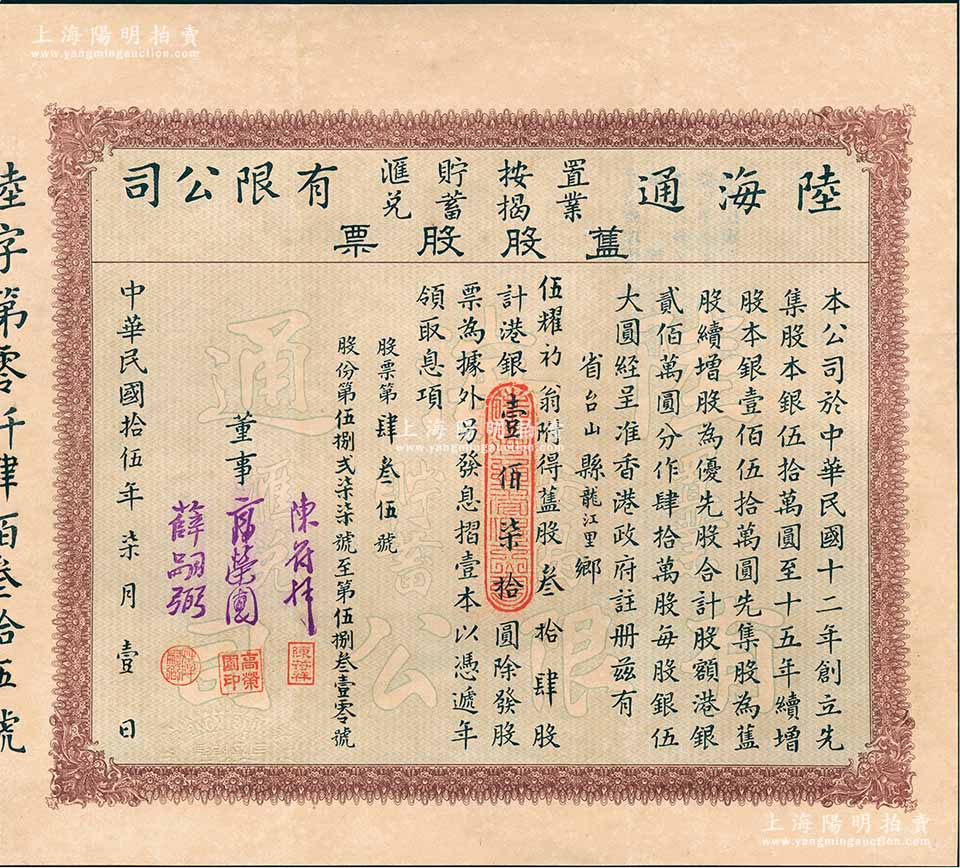 上海陽明拍賣
www.yangmingauction.com
陸海通
置業
按揭
貯蓄
匯兌
有限公司
舊股股票
本公司於中華民國十二年創立先
集股本銀伍拾萬圓至十五年續增
股本銀壹佰伍拾萬圓先集股為舊
股續增股為優先股合計股額港銀
貳佰萬圓分作肆拾萬股每股銀伍
大圓經呈准香港政府註册兹有
省台山縣龍江里鄉
伍耀礽翁附得舊股叁拾肆股
計港銀壹佰柒拾圓除發股
票為據外另發息摺壹本以憑遞年
領取息項
股票第肆叁伍號
股份第伍捌弍柒柒號至第伍捌叁壹零號
董事
陳符祥
高榮園
薛嗣弼
陳符祥
高榮園印
中華民國拾伍年柒月壹日
陸字第零千肆百叁拾伍號
上海陽明拍賣
www.yangmingauction.com
上海陽明拍賣
www.yangmingauction.com